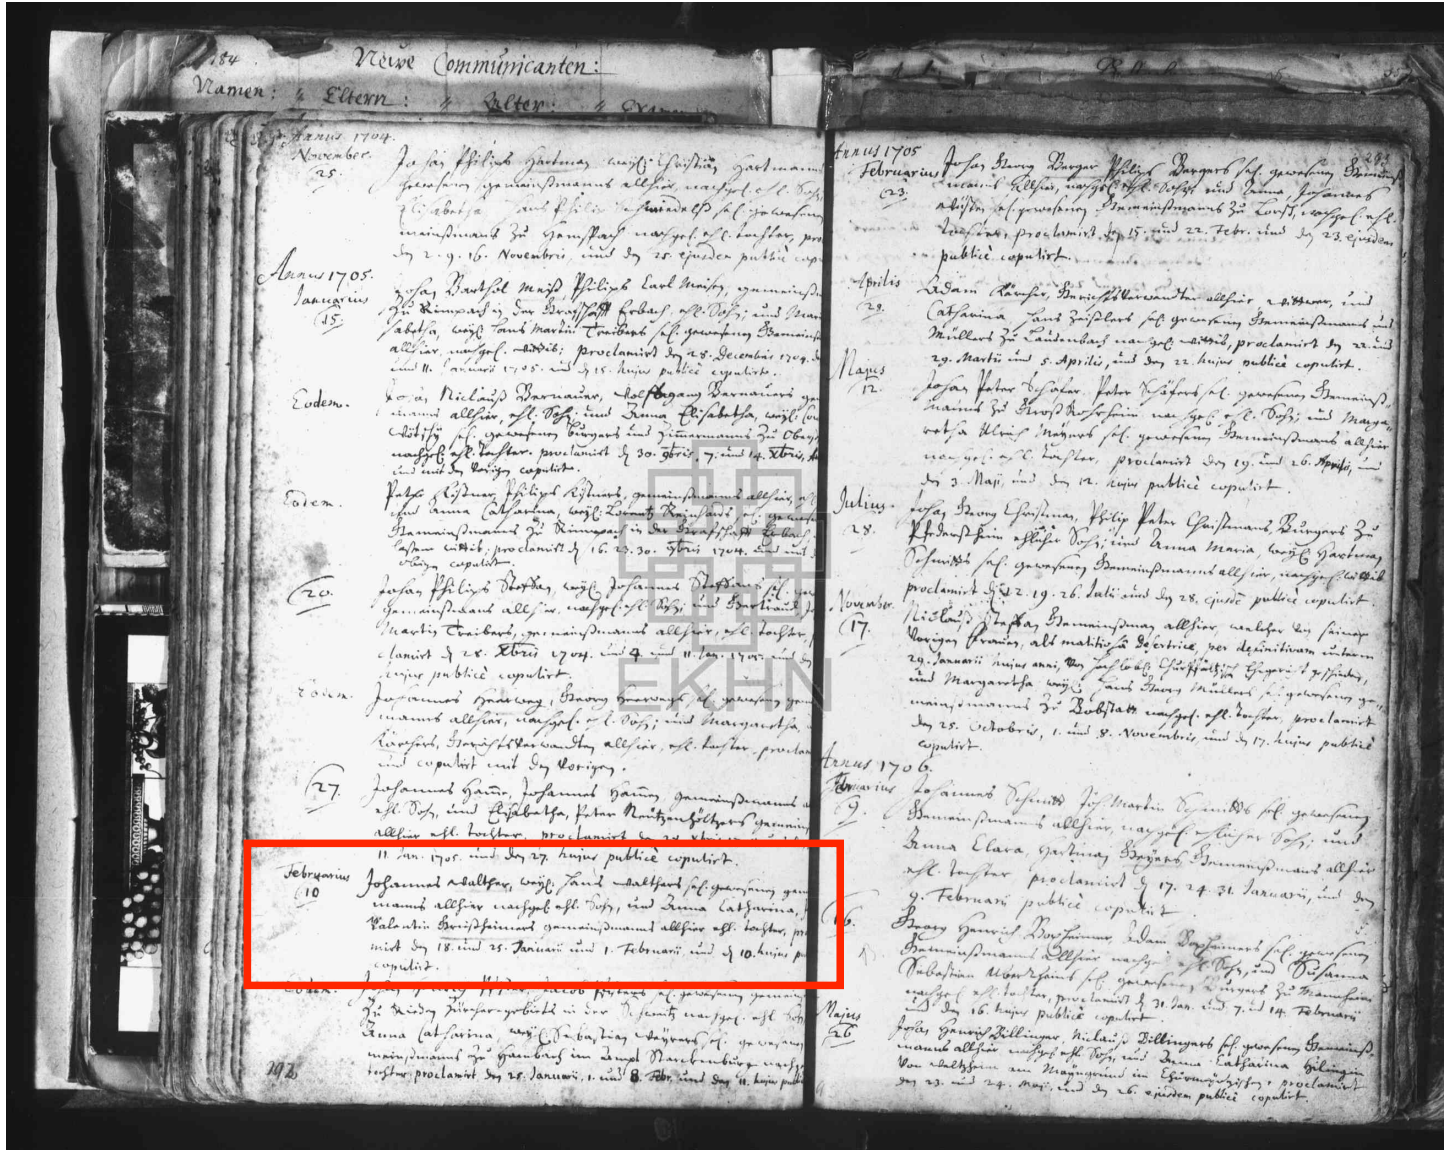 184
Neüe Communicanten:
Namen: " Eltern: " Alter:
Annus 1704.
November.
25.
Johan Philips Hartman, weyl. Christian Hartmanns
gewesenen gemeinßmanns allhier, nachgel. ehl. Sohn
Elisabetha Hans Philip Schmiedels sel. gewesenen
meinßmanns zu Hemspach nachgel. ehl. tochter, pro
den 2. 9. 16. Novembris, und den 25. ejusdem publicè cop
Annus 1705.
Januarius
15.
Johan Barthol Meiß, Philips Carl Meisen, gemeinß
zu Rimpach in der Graffschafft Erbach, ehl. Sohn; und Mar
sabetha, weyl. Hans Martin Treibers sel. gewesenen Gemein
allhier, nachgel. wittib; proclamirt den 28. Decembris 1704. d
und 11. Januarii 1705. und den 15. hujus publicè copulirt.
Eodem.
Johan Niclauß Bernauer, Wolffgang Bernauers ge
manns allhier, ehl. Sohn; und Anna Elisabetha, weyl.
sel. gewesenen burgers und Zimmermanns zu Ober
nachgel. ehl. tochter. proclamirt d. 30. 9bris, 7. und 14. Xbris,
und mit den vorigen copulirt.
Eodem.
Peter Philips gemeinßmanns allhier, eh
und Anna Catharina, weyl. Lorentz Reinhards sel. gewese
Gemeinßmanns zu Rimpach in der Graffschafft Erbach,
wittib; proclamirt d. 16. 23. 30. 9bris 1704. und mit
vorigen copulirt.
20.
Johan Philips Steffan, weyl. Johannes Steffans sel. gew
gemeinßmans allhier, nachgel. ehl. Sohn; und Gertraud,
Martin Treibers, gemeinßmanns allhier, ehl. tochter,
clamirt d. 28. Xbris 1704. und 4. und 11. Jan. 1705. und den
hujus publicè copulirt.
Eodem.
Johannes Georg sel. gewesenen gem
manns allhier, nachgel. ehl. Sohn; und Margaretha,
Kärchers, Gerichtsverwandten allhier, ehl. tochter, proclam
und copulirt mit den vorigen.
27.
Johannes Hamm, Johannes Hammen gemeinßmanns a
ehl. Sohn, und Elisabetha, Peter gemeinß
allhier ehl. tochter, proclamirt
11. Jan. 1705. und den 27. hujus publicè copulirt.
Februarius
10
Johannes Walther, weyl. Hans Walthers sel. gewesenen gem
manns allhier nachgel. ehl. Sohn, und Anna Catharina,
Valentin Griestheimers gemeinßmanns allhier ehl. tochter, pro
mirt den 18. und 25. Januarii und 1. Februarii, und d. 10. hujus pu
copulirt.
Eodem.
Jacob sel. gewesenen gemein
zu Zürcher-gebiets in der Schweitz nachgel. ehl. Sohn
Anna Catharina, weyl. Sebastian Weyrers sel. gewesenen
meinßmanns zu Hambach im Ampt Starckenburg nachg
tochter, proclamirt den 25. Januarii, 1. und 8. Febr. und den 11. hujus publi
292
Annus 1705
Februarius
23.
Johan Georg Berger Philips Bergers sel. gewesenen Gemeinß
manns allhier, nachgel. ehl. Sohn und Anna, Johannes
sel. gewesenen Gemeinßmanns zu Lorsch, nachgel. ehl.
tochter, proclamirt d. 15. und 22. Febr. und den 23. ejusdem
publicè copulirt.
Aprilis
22.
Adam Kärcher, Gerichtsverwandter allhier, wittwer, und
Catharina Hans Zeißlers sel. gewesenen Gemeinßmanns und
Müllers zu Laudenbach nachgel. wittib, proclamirt den 22. und
29. Martii und 5. Aprilis, und den 22. hujus publicè copulirt.
Majus
12.
Johan Peter Schäfer, Peter Schäfers sel. gewesenen Gemeinß-
manns zu Groß Rohrheim nachgel. ehl. Sohn; und Marga-
retha Ulrich Meyers sel. gewesenen Gemeinßmans allhier
nachgel. ehl. tochter, proclamirt den 19. und 26. Aprilis, und
den 3. Maji, und den 12. hujus publicè copulirt.
Julius.
28.
Johan Georg Christman, Philip Peter Christmans, Burgers zu
Pfedersheim ehlicher Sohn; und Anna Maria, weyl. Hartman
Schmitts sel. gewesenen Gemeinßmanns allhier, nachgel. wittib
proclamirt d. 12. 19. 26. Julii und den 28. ejusd. publicè copulirt.
November.
17.
Niclauß Steffan Gemeinßman allhier, welcher von seiner
vorigen frauen, als malitiosa desertrice, per definitivam unterm
29. Januarii hujus anni, von hochlobl. Churpfältzisch Ehegericht geschieden,
und Margaretha weyl. Hans Georg Müllers sel. gewesenen ge-
meinßmanns zu Bobstatt nachgel. ehl. tochter, proclamirt
den 25. Octobris, 1. und 8. Novembris, und den 17. hujus publicè
copulirt.
Annus 1706.
Februarius
9.
Johannes Schmitt Joh. Martin Schmitts sel. gewesenen
Gemeinßmanns allhier, nachgel. ehlicher Sohn; und
Anna Clara, Hartman Geyers Gemeinßmans allhier
ehl. tochter proclamirt d. 17. 24. 31. Januarii, und den
9. Februarii publicè copulirt
16.
Georg Henrich Adam sel. gewesenen
Gemeinßmanns allhier nachgel. ehl. Sohn, und Susanna
Sebastian sel. gewesenen Burgers zu Mannheim
nachgel. ehl. tochter, proclamirt d. 31. Jan. und 7. und 14. Februarii
und den 16. hujus publicè copulirt.
Majus
26
Johan Henrich Dillinger, Niclauß Dillingers sel. gewesenen Gemeinß-
manns allhier nachgel. ehl. Sohn, und Anna Catharina
von am Mayngrund im Churmayntzischen, proclamirt
den 23. und 24. Maji, und den 26. ejusdem publicè copulirt.
EKHN